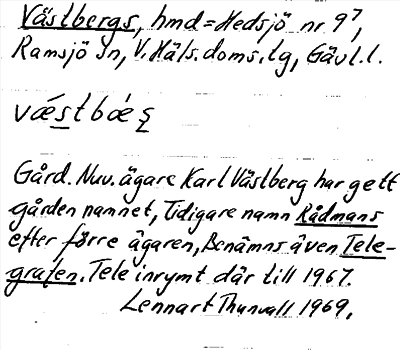 Västbergs, hmd = Hedsjö nr 9⁷,
Ramsjö sn, V. Häls. doms.lg, Gävl. l.
vǽstbæ̀ʂ
Gård. Nuv. ägare Karl Västberg har gett
gården namnet, Tidigare namn Rådmans
efter förre ägaren, Benämns även Tele-
grafen. Tele inrymt där till 1967.
Lennart Thunvall 1969.